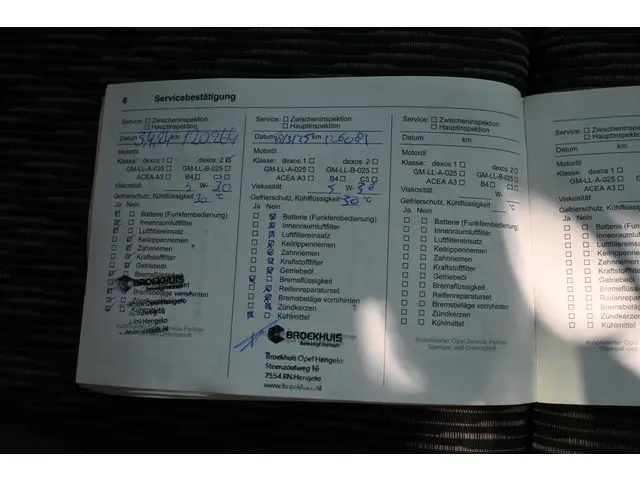 6 Servicebestätigung
Service: Zwischeninspektion
Hauptinspektion
Datum 3,4,24 km 120264
Motoröl
Klasse: dexos 1 dexos 2
GM-LL-A-025 GM-LL-B-025
ACEA A3 B4 C3
Viskosität: 5 W- 30
Gefrierschutz, Kühlflüssigkeit 30 °C
Ja Nein
Batterie (Funkfernbedienung)
Innenraumluftfilter
Luftfiltereinsatz
Keilrippenriemen
Zahnriemen
Kraftstofffilter
Getriebeöl
Bremsflüssigkeit
BROEKHUIS
Bremsbeläge vorn/hinten
7554 RN Hengelo
Service: Zwischeninspektion
Hauptinspektion
Datum 18/3/25 km 126081
Motoröl
Klasse: dexos 1 dexos 2
GM-LL-A-025 GM-LL-B-025
ACEA A3 B4 C3
Viskosität: 5 W- 30
Gefrierschutz, Kühlflüssigkeit 30 °C
Ja Nein
Batterie (Funkfernbedienung)
Innenraumluftfilter
Luftfiltereinsatz
Keilrippenriemen
Zahnriemen
Kraftstofffilter
Getriebeöl
Bremsflüssigkeit
Reifenreparaturset
Bremsbeläge vorn/hinten
Zündkerzen
Kühlmittel
BROEKHUIS
Broekhuis Opel Hengelo
Steenzoutweg 16
7554 RN Hengelo
www.broekhuis.nl
Service: Zwischeninspektion
Hauptinspektion
Datum km
Motoröl
Klasse: dexos 1 dexos 2
GM-LL-A-025 GM-LL-B-025
ACEA A3 B4 C3
Viskosität: W-
Gefrierschutz, Kühlflüssigkeit °C
Ja Nein
Batterie (Funkfernbedienung)
Innenraumluftfilter
Luftfiltereinsatz
Keilrippenriemen
Zahnriemen
Kraftstofffilter
Getriebeöl
Bremsflüssigkeit
Reifenreparaturset
Bremsbeläge vorn/hinten
Zündkerzen
Kühlmittel
Autorisierter Opel Service Partner
Stempel und Unterschrift
Service: Zwischeninsp
Hauptinspektion
Datum
Motoröl
Klasse: dexos 1
GM-LL-A-025
ACEA A3
Viskosität:
Gefrierschutz, Kühlflüssig
Ja Nein
Batterie (Fun
Innenraumluf
Luftfilterein
Keilrippen
Zahnrieme
Kraftstofff
Getriebeö
Bremsflüs
Bremsbel
Zündkerz
Kühlmitte